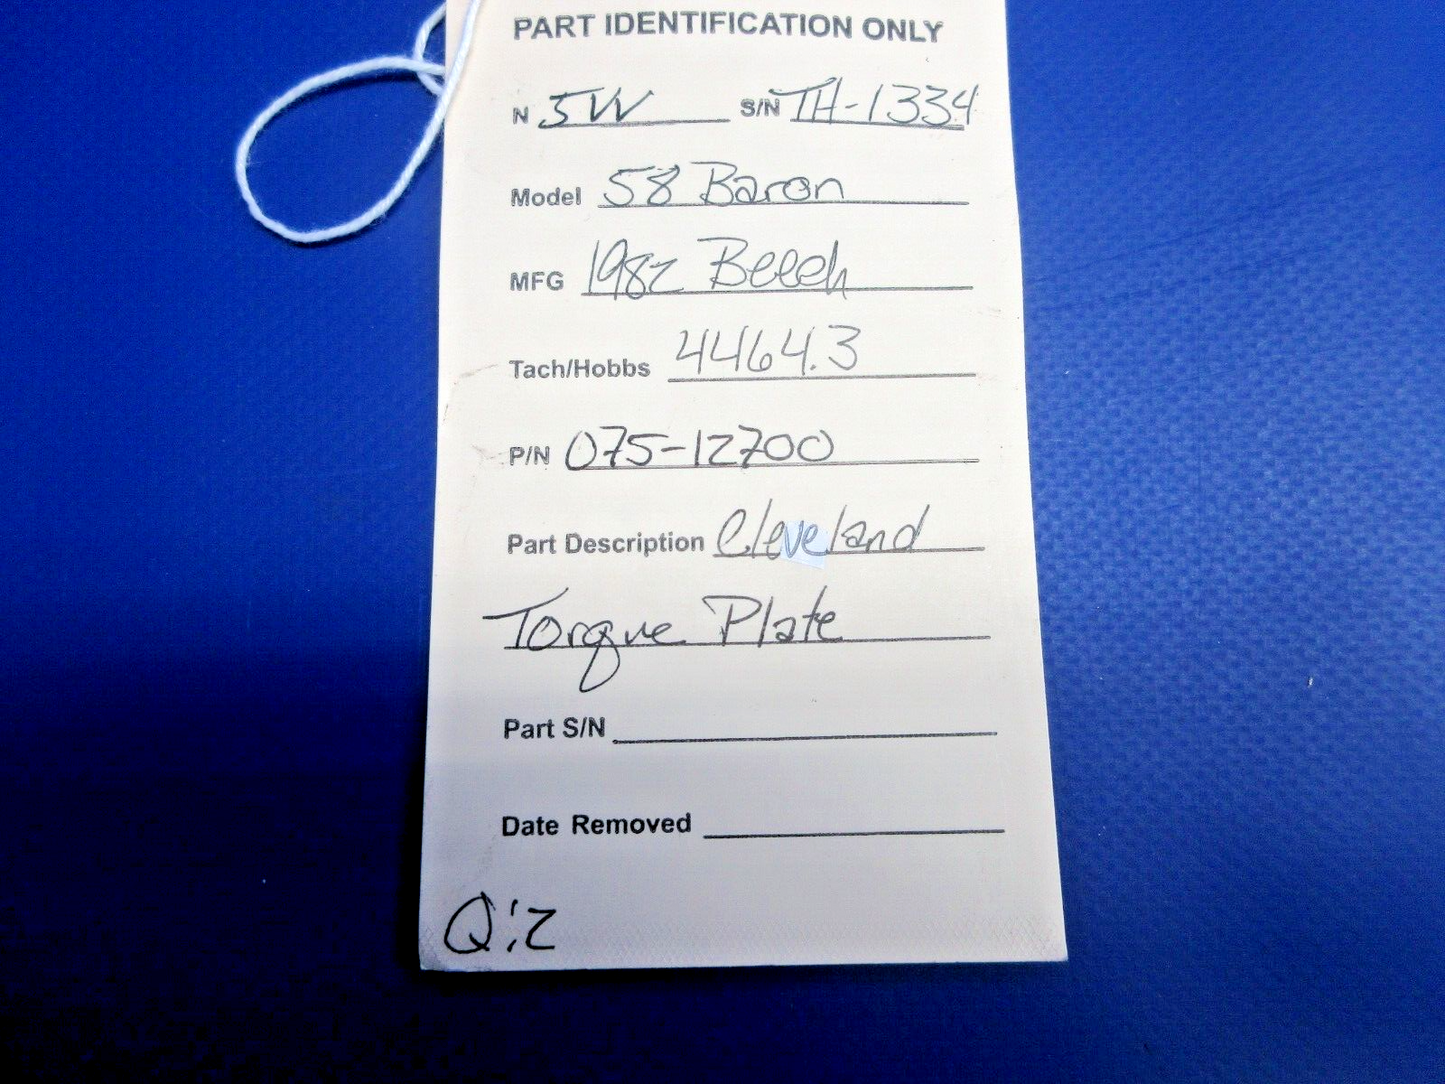 PART IDENTIFICATION ONLY
N 5W S/N TH-1334
Model 58 Baron
MFG 1982 Beech
Tach/Hobbs 4464.3
P/N 075-12700
Part Description Cleveland
Torque Plate
Part S/N
Date Removed
Q:2